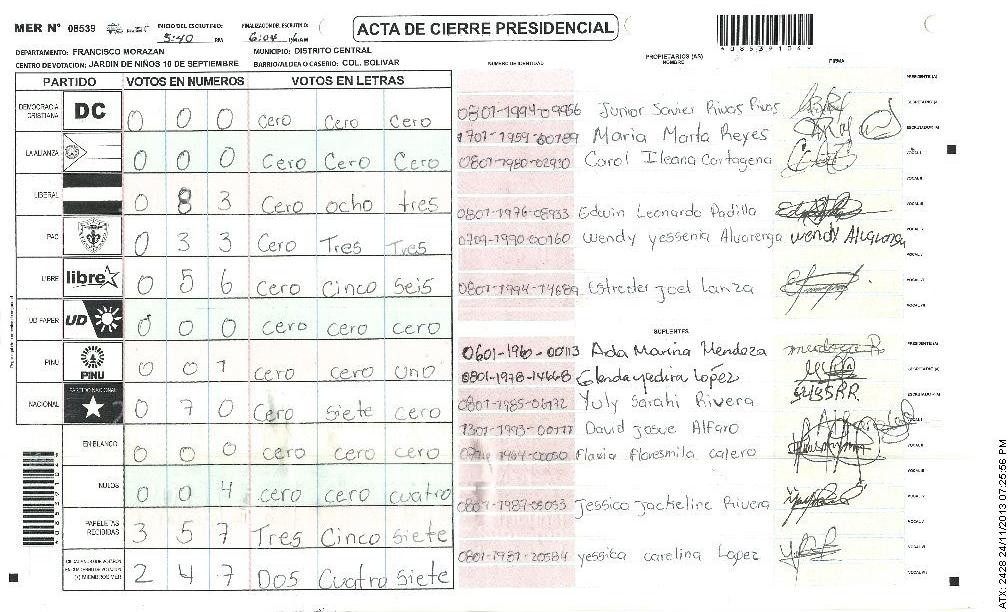 MER N° 08539 INICIO DEL ESCRUTINIO: 5:40 PM FINALIZACION DEL ESCRUTINIO: 6:04
ACTA DE CIERRE PRESIDENCIAL
DEPARTAMENTO: FRANCISCO MORAZAN MUNICIPIO: DISTRITO CENTRAL
CENTRO DE VOTACION: JARDIN DE NIÑOS 10 DE SEPTIEMBRE BARRIO/ALDEA O CASERIO: COL. BOLIVAR
PARTIDO VOTOS EN NUMEROS VOTOS EN LETRAS
DEMOCRACIA CRISTIANA DC 0 0 0 cero cero cero
LA ALIANZA 0 0 0 Cero Cero Cero
LIBERAL 0 8 3 Cero ocho tres
PAC 0 3 3 Cero Tres Tres
LIBRE libre 0 5 6 Cero Cinco Seis
UD FAPER UD 0 0 0 cero cero cero
PINU PINU 0 0 1 cero cero uno
NACIONAL PARTIDO NACIONAL 0 7 0 Cero Siete cero
EN BLANCO 0 0 0 cero cero cero
NULOS 0 0 4 cero cero cuatro
PAPELETAS RECIBIDAS 3 5 7 Tres Cinco siete
2 4 7 Dos Cuatro Siete
NUMERO DE IDENTIDAD PROPIETARIOS (AS) NOMBRE FIRMA
PRESIDENTE (A)
0801-1994-09966 Junior Javier Rivas Rivas SECRETARIO (A)
1701-1959-00189 Maria Marta Reyes ESCRUTADOR (A)
0801-1980-02930 Carol Ileana Cartagena VOCAL I
VOCAL II
0801-1976-08933 Edwin Leonardo Padilla VOCAL III
0709-1990-00160 Wendy yessenia Alvarenga wendy Alvarenga
0801-1994-14689 Joel Lanza
SUPLENTES
0601-1960-00113 Ada Marina Mendoza PRESIDENTE (A)
0801-1978-14668 Glenda yadira López SECRETARIO (A)
0801-1985-06172 Yuly Sarahi Rivera ESCRUTADOR (A)
1301-1993-00177 David Josue Alfaro VOCAL I
Flavia Floresmila calero
Jessica Jackeline Rivera
0801-1981-20584 yessica carelina Lopez
ATX: 2428 24/11/2013 07:25:56 PM